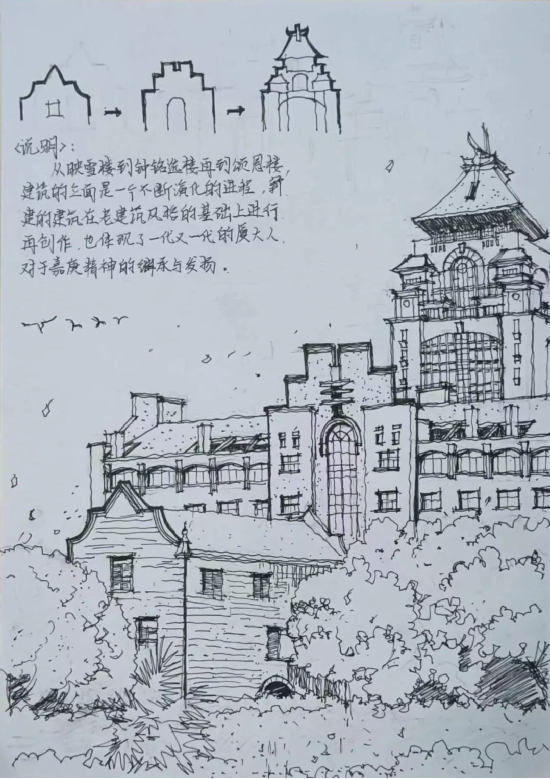 <说明>:
从映雪楼到钟铭选楼再到颂恩楼，
建筑的立面是一个不断演化的进程，新
建的建筑在老建筑风格的基础上进行
再创作，也体现了一代又一代的厦大人
对于嘉庚精神的继承与发扬。